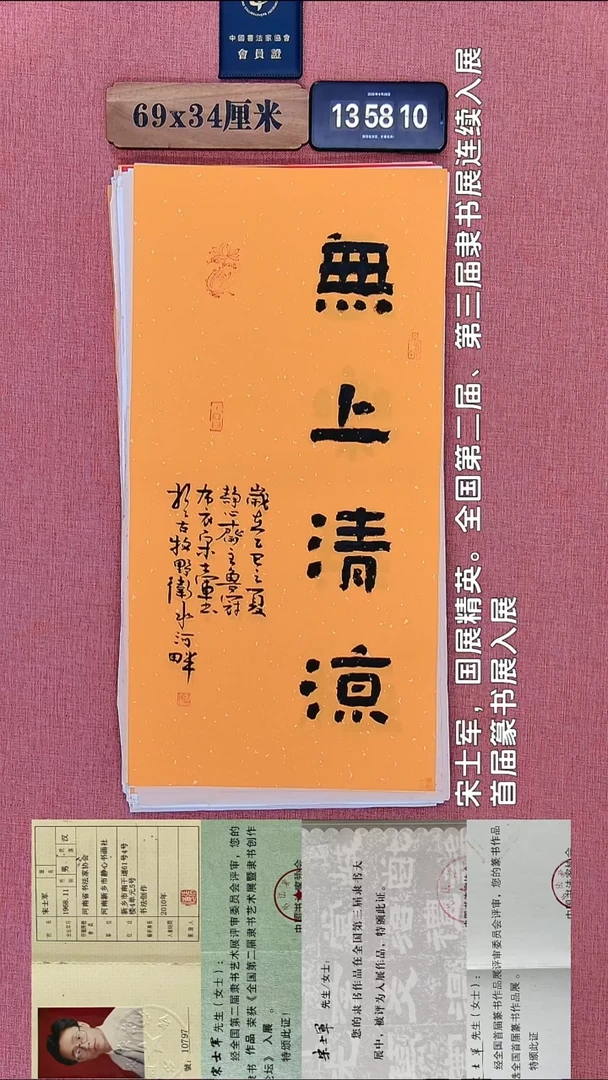 中國書法家協會
會員證
69x34厘米
13 58 10
無上清涼
歲在乙巳夏
布衣宋士軍書
於古牧野衛水河畔
宋士军，国展精英。全国第二届、第三届隶书展连续入展
首届篆书展入展
宋士军
男
汉
1968.11
河南省书法家协会
河南新乡市静心书画社
新乡市南干道61号4号
楼4单元5号
书法创作
2010年
號：10797
宋士军 先生（女士）：
经全国第二届隶书艺术展评审委员会评审，您的
隶书 作品 荣获《全国第二届隶书艺术展暨隶书创作
论坛》 入展 。
特颁此证！
宋士军 先生/女士：
您的隶书作品在全国第三届隶书大
展中，被评为入展作品，特颁此证。
士军 先生（女士）：
经全国首届篆书作品展评审委员会评审，您的篆书作品
选全国首届篆书作品展。
特颁此证